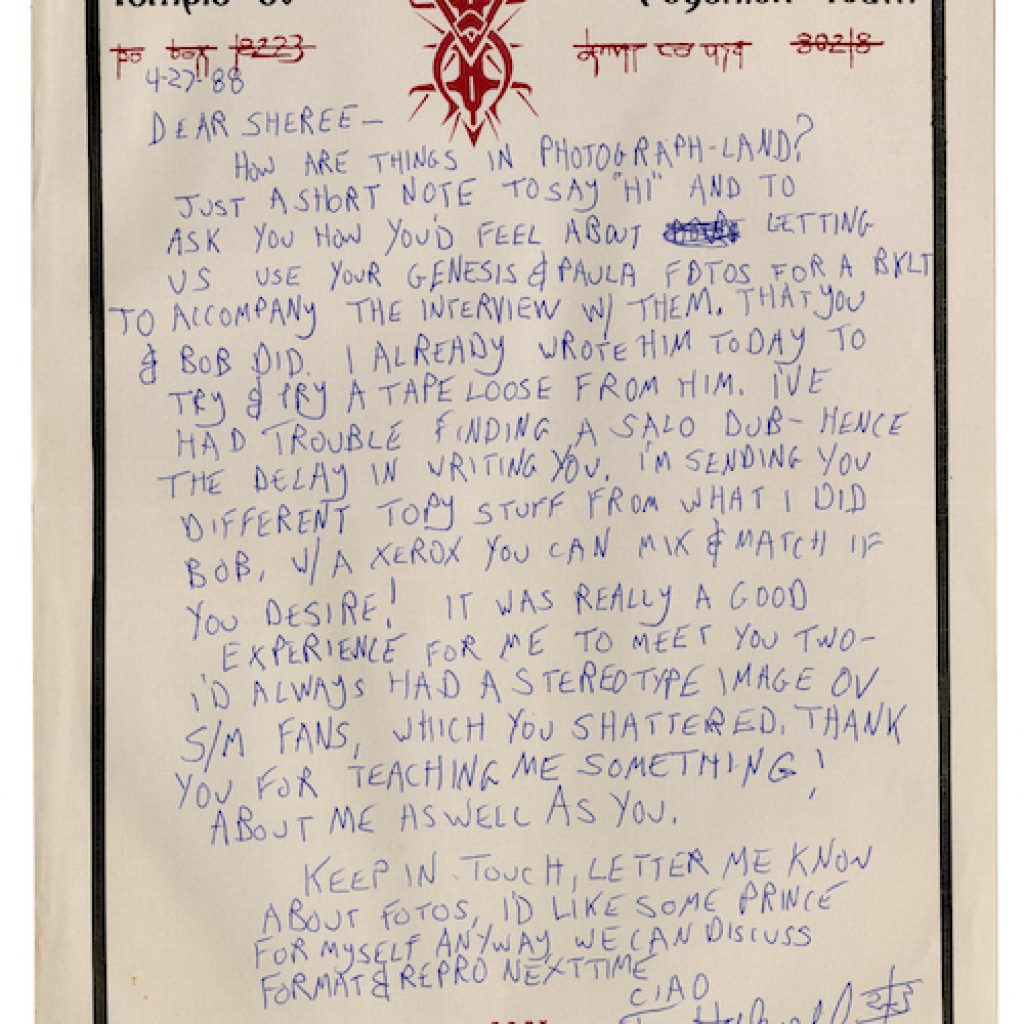 4-27-88
DEAR SHEREE—
HOW ARE THINGS IN PHOTOGRAPH-LAND?
JUST A SHORT NOTE TO SAY "HI" AND TO
ASK YOU HOW YOU'D FEEL ABOUT LETTING
US USE YOUR GENESIS & PAULA FOTOS FOR A BKLT
TO ACCOMPANY THE INTERVIEW W/ THEM, THAT YOU
& BOB DID. I ALREADY WROTE HIM TODAY TO
TRY & PRY A TAPE LOOSE FROM HIM. I'VE
HAD TROUBLE FINDING A SALO DUB- HENCE
THE DELAY IN WRITING YOU. I'M SENDING YOU
DIFFERENT TOPY STUFF FROM WHAT I DID
BOB, W/A XEROX YOU CAN MIX & MATCH IF
YOU DESIRE! IT WAS REALLY A GOOD
EXPERIENCE FOR ME TO MEET YOU TWO-
I'D ALWAYS HAD A STEREOTYPE IMAGE OV
S/M FANS, WHICH YOU SHATTERED. THANK
YOU FOR TEACHING ME SOMETHING!
ABOUT ME ASWELL AS YOU.
KEEP IN TOUCH, LETTER ME KNOW
ABOUT FOTOS, I'D LIKE SOME PRINCE
FOR MYSELF ANYWAY WE CAN DISCUSS
FORMAT & REPRO NEXT TIME
CIAO